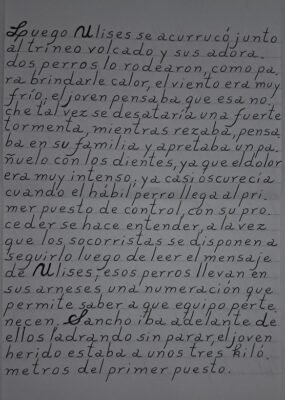 Luego Ulises se acurrucó junto
al trineo volcado y sus adora_
dos perros lo rodearon, como pa_
ra brindarle calor, el viento era muy
frío; el joven pensaba que esa no_
che tal vez se desataría una fuerte
tormenta, mientras rezaba, pensa
ba en su familia y apretaba un pa_
ñuelo con los dientes, ya que el dolor
era muy intenso; ya casi oscurecía
cuando el hábil perro llega al pri_
mer puesto de control, con su pro_
ceder se hace entender, a la vez
que los socorristas se disponen a
seguirlo luego de leer el mensaje
de Ulises; esos perros llevan en
sus arneses, una numeración que
permite saber a que equipo perte_
necen, Sancho iba adelante de
ellos ladrando sin parar, el joven
herido estaba a unos tres kiló_
metros del primer puesto.